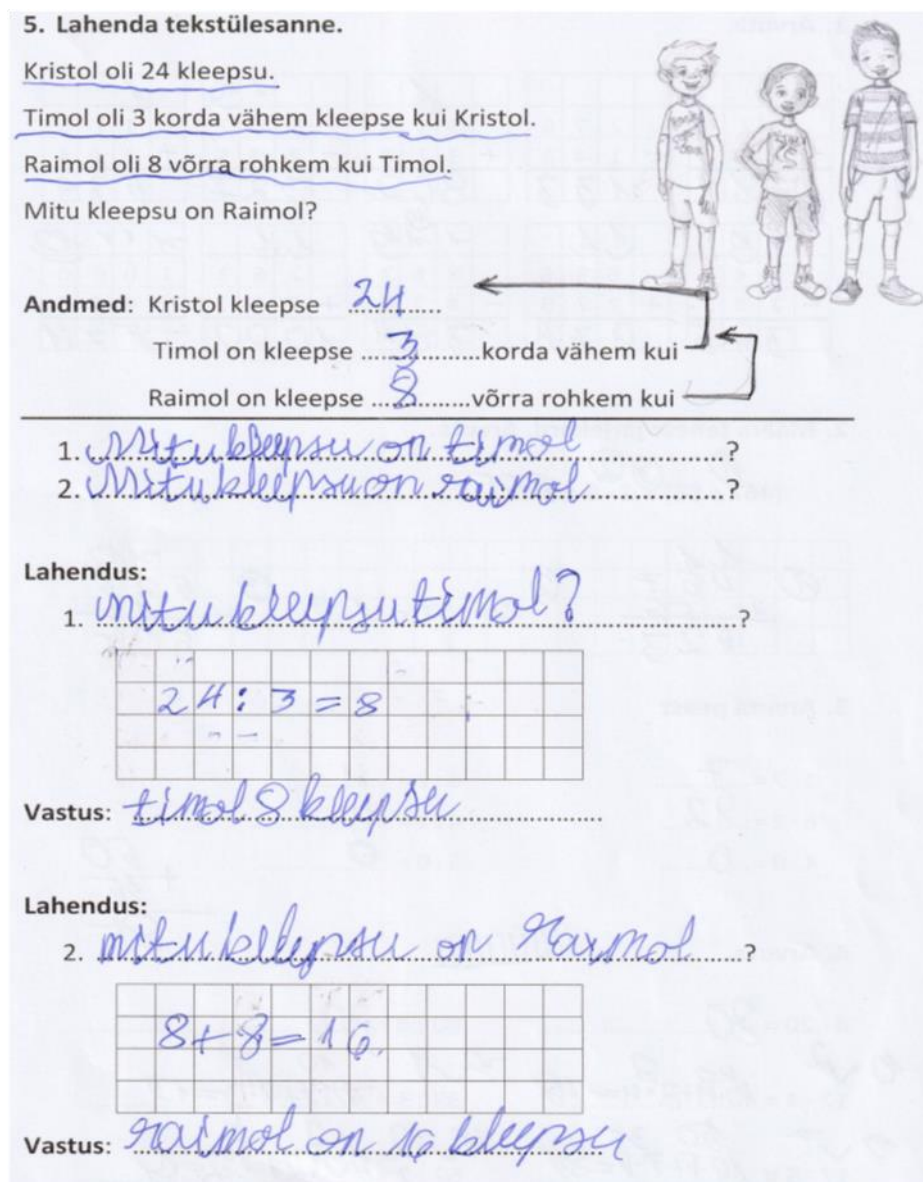 5. Lahenda tekstülesanne.
Kristol oli 24 kleepsu.
Timol oli 3 korda vähem kleepse kui Kristol.
Raimol oli 8 võrra rohkem kui Timol.
Mitu kleepsu on Raimol?
Andmed: Kristol kleepse 24
Timol on kleepse 3 korda vähem kui
Raimol on kleepse 8 võrra rohkem kui
1. Mitu kleepsu on timol ?
2. Mitu kleepsu on raimol ?
Lahendus:
1 mitu kleepsu timol? ?
24 : 3 = 8
Vastus: timol 8 kleepsu
Lahendus:
2. mitu kleepsu on Raimol ?
8 + 8 = 16.
Vastus: raimol on 16 kleepsu